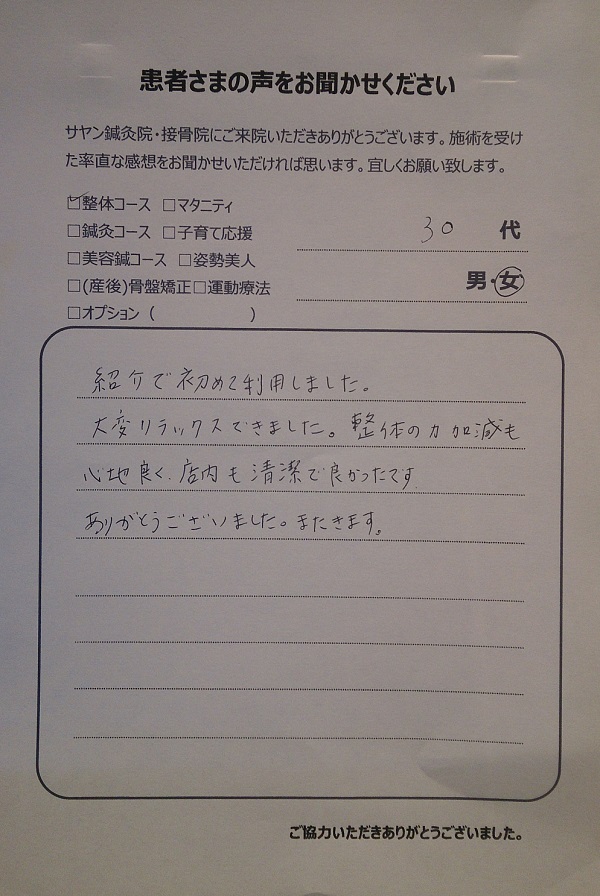 患者さまの声をお聞かせください
サヤン鍼灸院・接骨院にご来院いただきありがとうございます。施術を受け
た率直な感想をお聞かせいただければ思います。宜しくお願い致します。
☑整体コース □マタニティ
□鍼灸コース □子育て応援
30 代
□美容鍼コース □姿勢美人
男・女
□(産後)骨盤矯正□運動療法
□オプション（ ）
紹介で初めて利用しました。
大変リラックスできました。整体の力加減も
心地良く、店内も清潔で良かったです
ありがとうございました。またきます。
ご協力いただきありがとうございました。